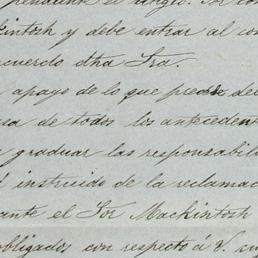 pendiente el arreglo. Por con
kintosh y debe entrar al con
cuerdo dha Sra.
apoyo de lo que precede de
sa de todos los antecedent
graduar las responsabili
instruido de la reclamac
ante el Sor Mackintosh
obligados con respecto á V. cu